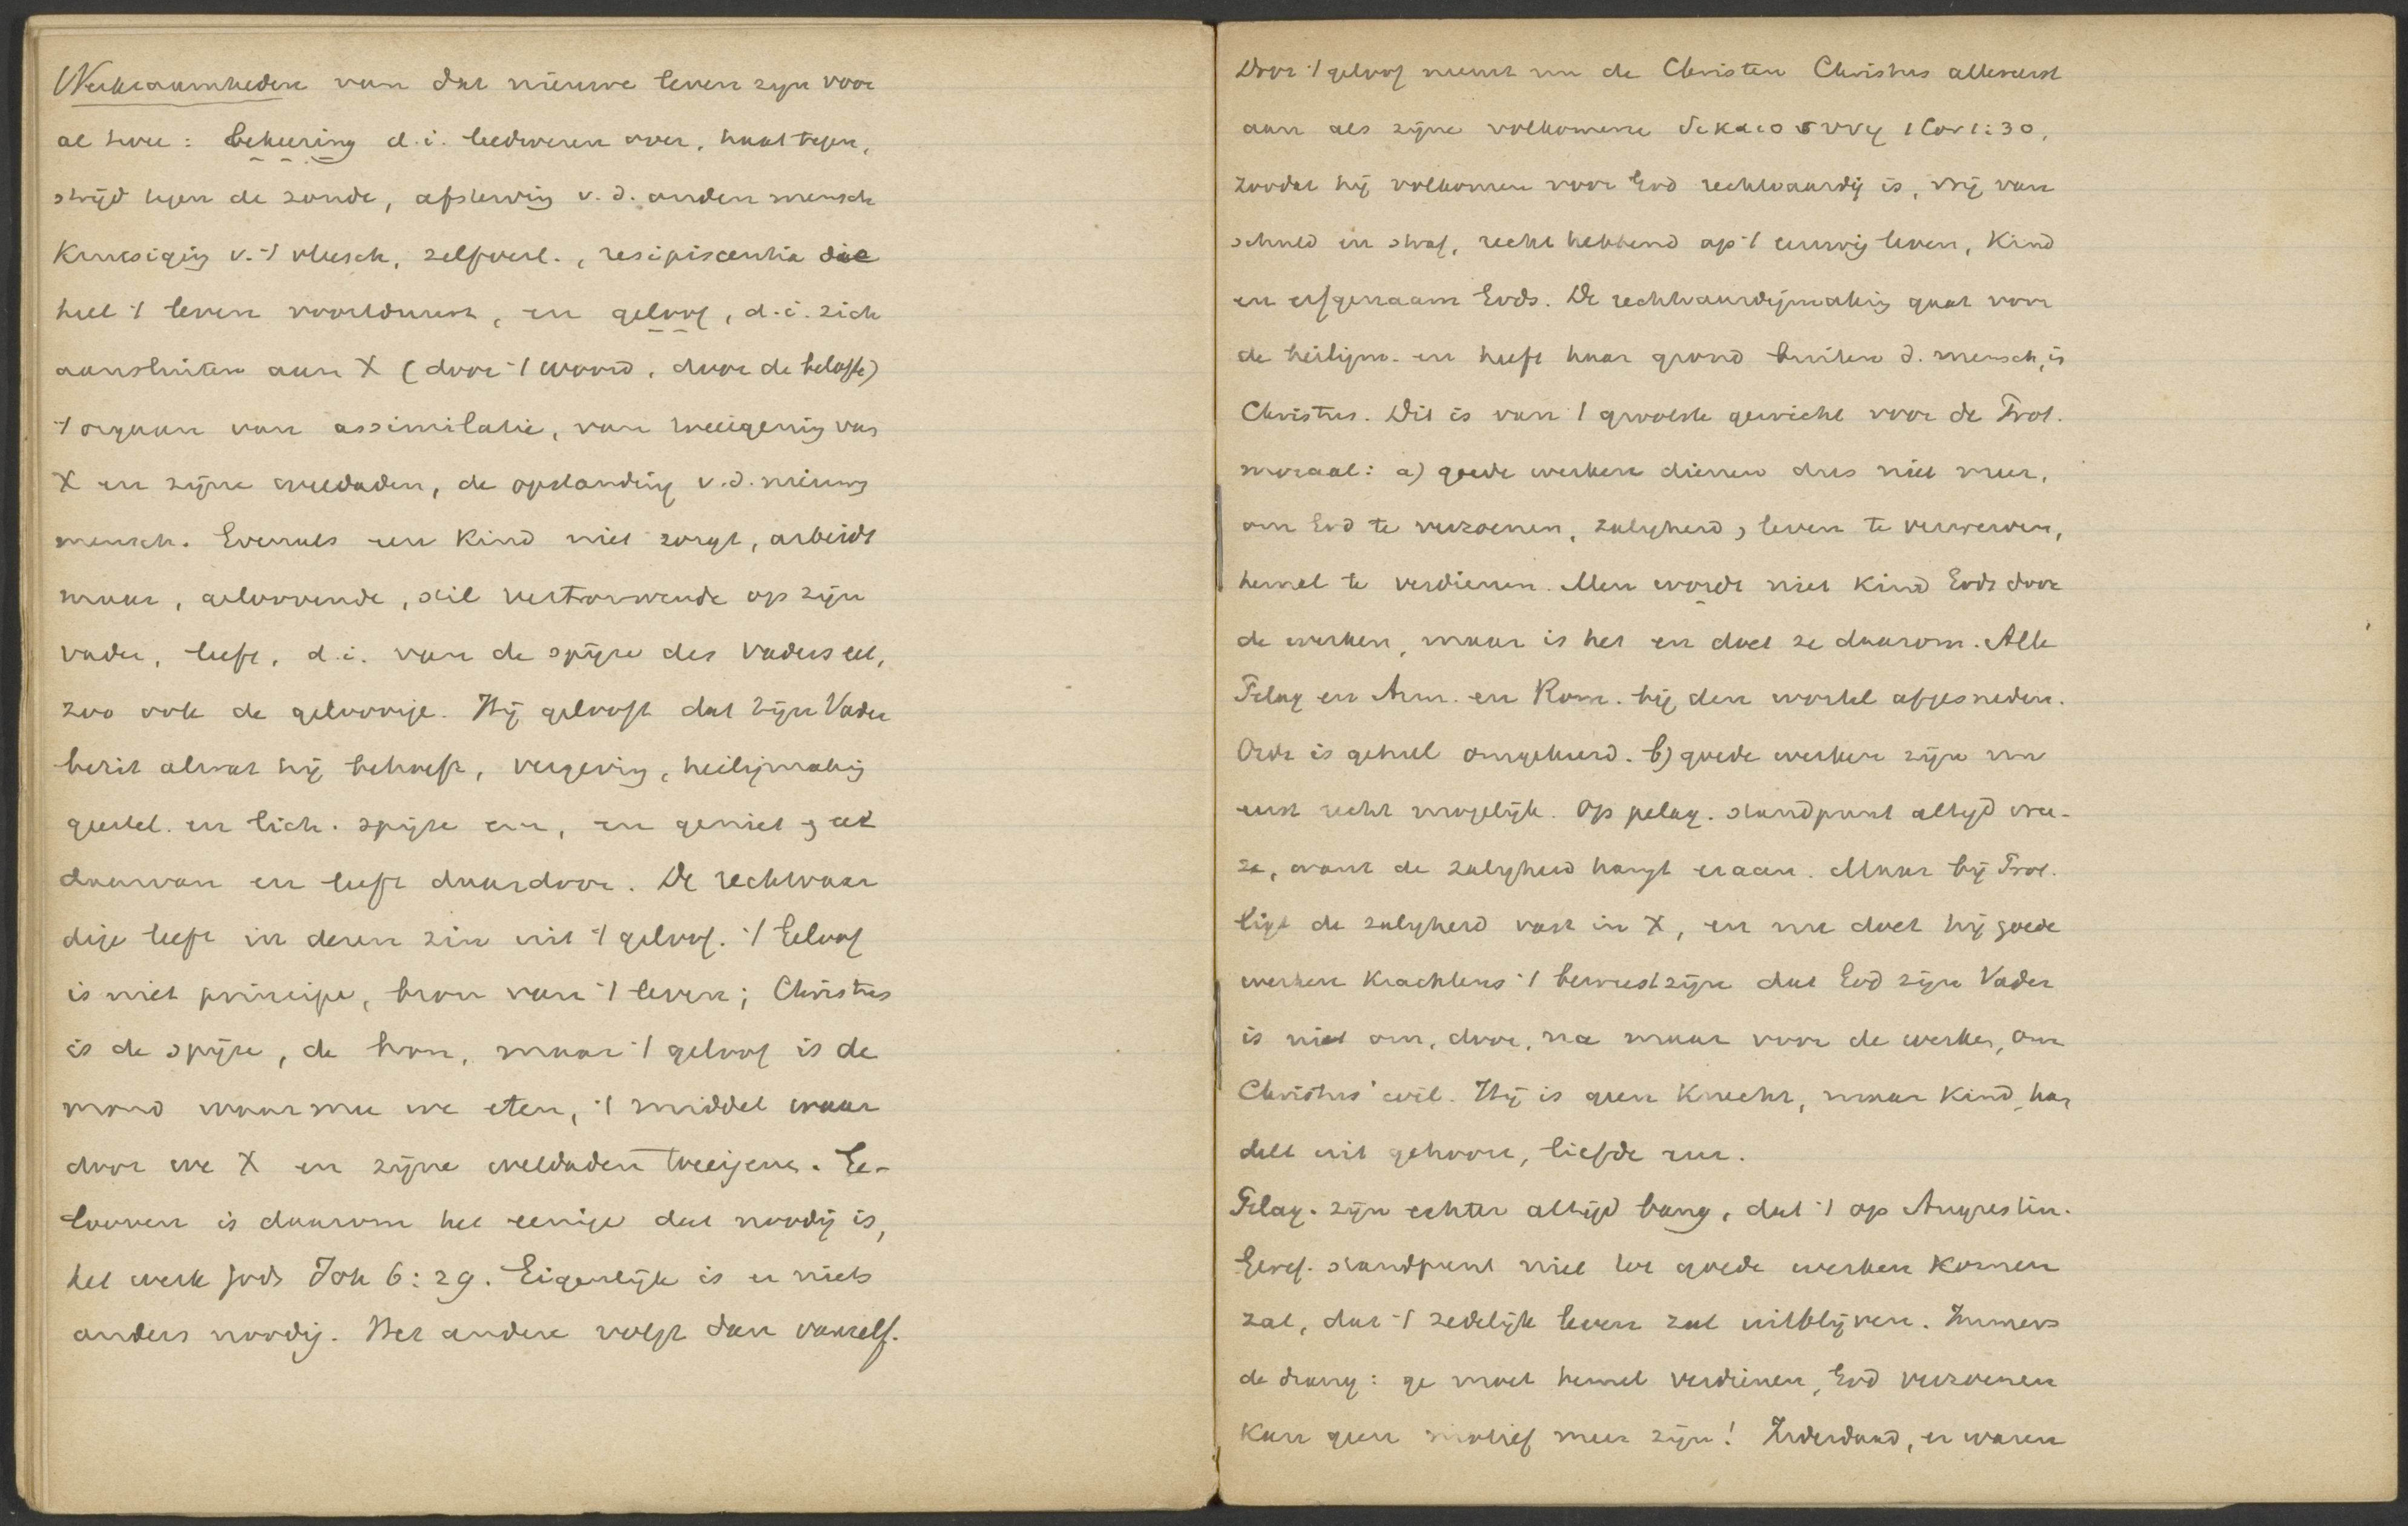 Werkzaamheden van dat nieuwe leven zijn voor
al twee: bekeering d.i. leedwezen over, haat tegen,
strijd tegen de zonde, afsterving v.d. ouden mensch
kruisiging v. 't vleesch, zelfverl., resipiscentia die
heel 't leven voortduurt, en geloof, d.i. zich
aansluiten aan X (door 't woord, door de belofte)
't orgaan van assimilatie, van toeeigening van
X en zijne weldaden, de opstanding v.d. nieuwe
mensch. Evenals een kind niet zorgt, arbeidt
maar, geloovende, stil vertrouwende op zijn
vader, leeft, d.i. van de spijze des vaders eet,
zoo ook de geloovige. Hij gelooft dat zijn Vader
bezit alwat hij behoeft, vergeving, heiligmaking
geestel. en lich. spijze enz, en geniet en eet
daarvan en leeft daardoor. De rechtvaar
dige leeft in dezen zin uit 't geloof. 't Geloof
is niet principe, bron van 't leven; Christus
is de spijze, de bron, maar 't geloof is de
mond waarmee we eten, 't middel waar
door we X en zijne weldaden toeeigenen. Ge-
looven is daarom het eenige dat noodig is,
het werk Gods Joh 6:29. Eigenlijk is er niets
anders noodig. Het andere volgt dan vanzelf.
Door 't geloof neemt nu de Christen Christus allereerst
aan als zijne volkomene δικαιοσυνη 1 Cor 1:30,
zoodat hij volkomen voor God rechtvaardig is, vrij van
schuld en straf, recht hebbend op 't eeuwig leven, kind
en erfgenaam Gods. De rechtvaardigmaking gaat voor
de heiligm. en heeft haar grond buiten d. mensch, in
Christus. Dit is van 't grootste gewicht voor de Prot.
moraal: a) goede werken dienen dus niet meer,
om God te verzoenen, zaligheid, leven te verwerven,
hemel te verdienen. Men wordt niet kind Gods door
de werken, maar is het en doet ze daarom. Alle
Pelag en Arm. en Rom. bij den wortel afgesneden.
Orde is geheel omgekeerd. b) goede werken zijn nu
eerst recht mogelijk. Op pelag. standpunt altijd vree-
ze, want de zaligheid hangt eraan. Maar bij Prot.
ligt de zaligheid vast in X, en nu doet hij goede
werken krachtens 't bewustzijn dat God zijn Vader
is niet om, door, na maar voor de werken, om
Christus' wil. Hij is geen knecht, maar kind, han
delt uit gehoorz., liefde enz.
Pelag. zijn echter altijd bang, dat 't op Augustin.
Geref. standpunt niet tot goede werken komen
zal, dat 't zedelijk leven zal uitblijven. Immers
de drang: ge moet hemel verdienen, God verzoenen
kan geen motief meer zijn! Inderdaad, er waren